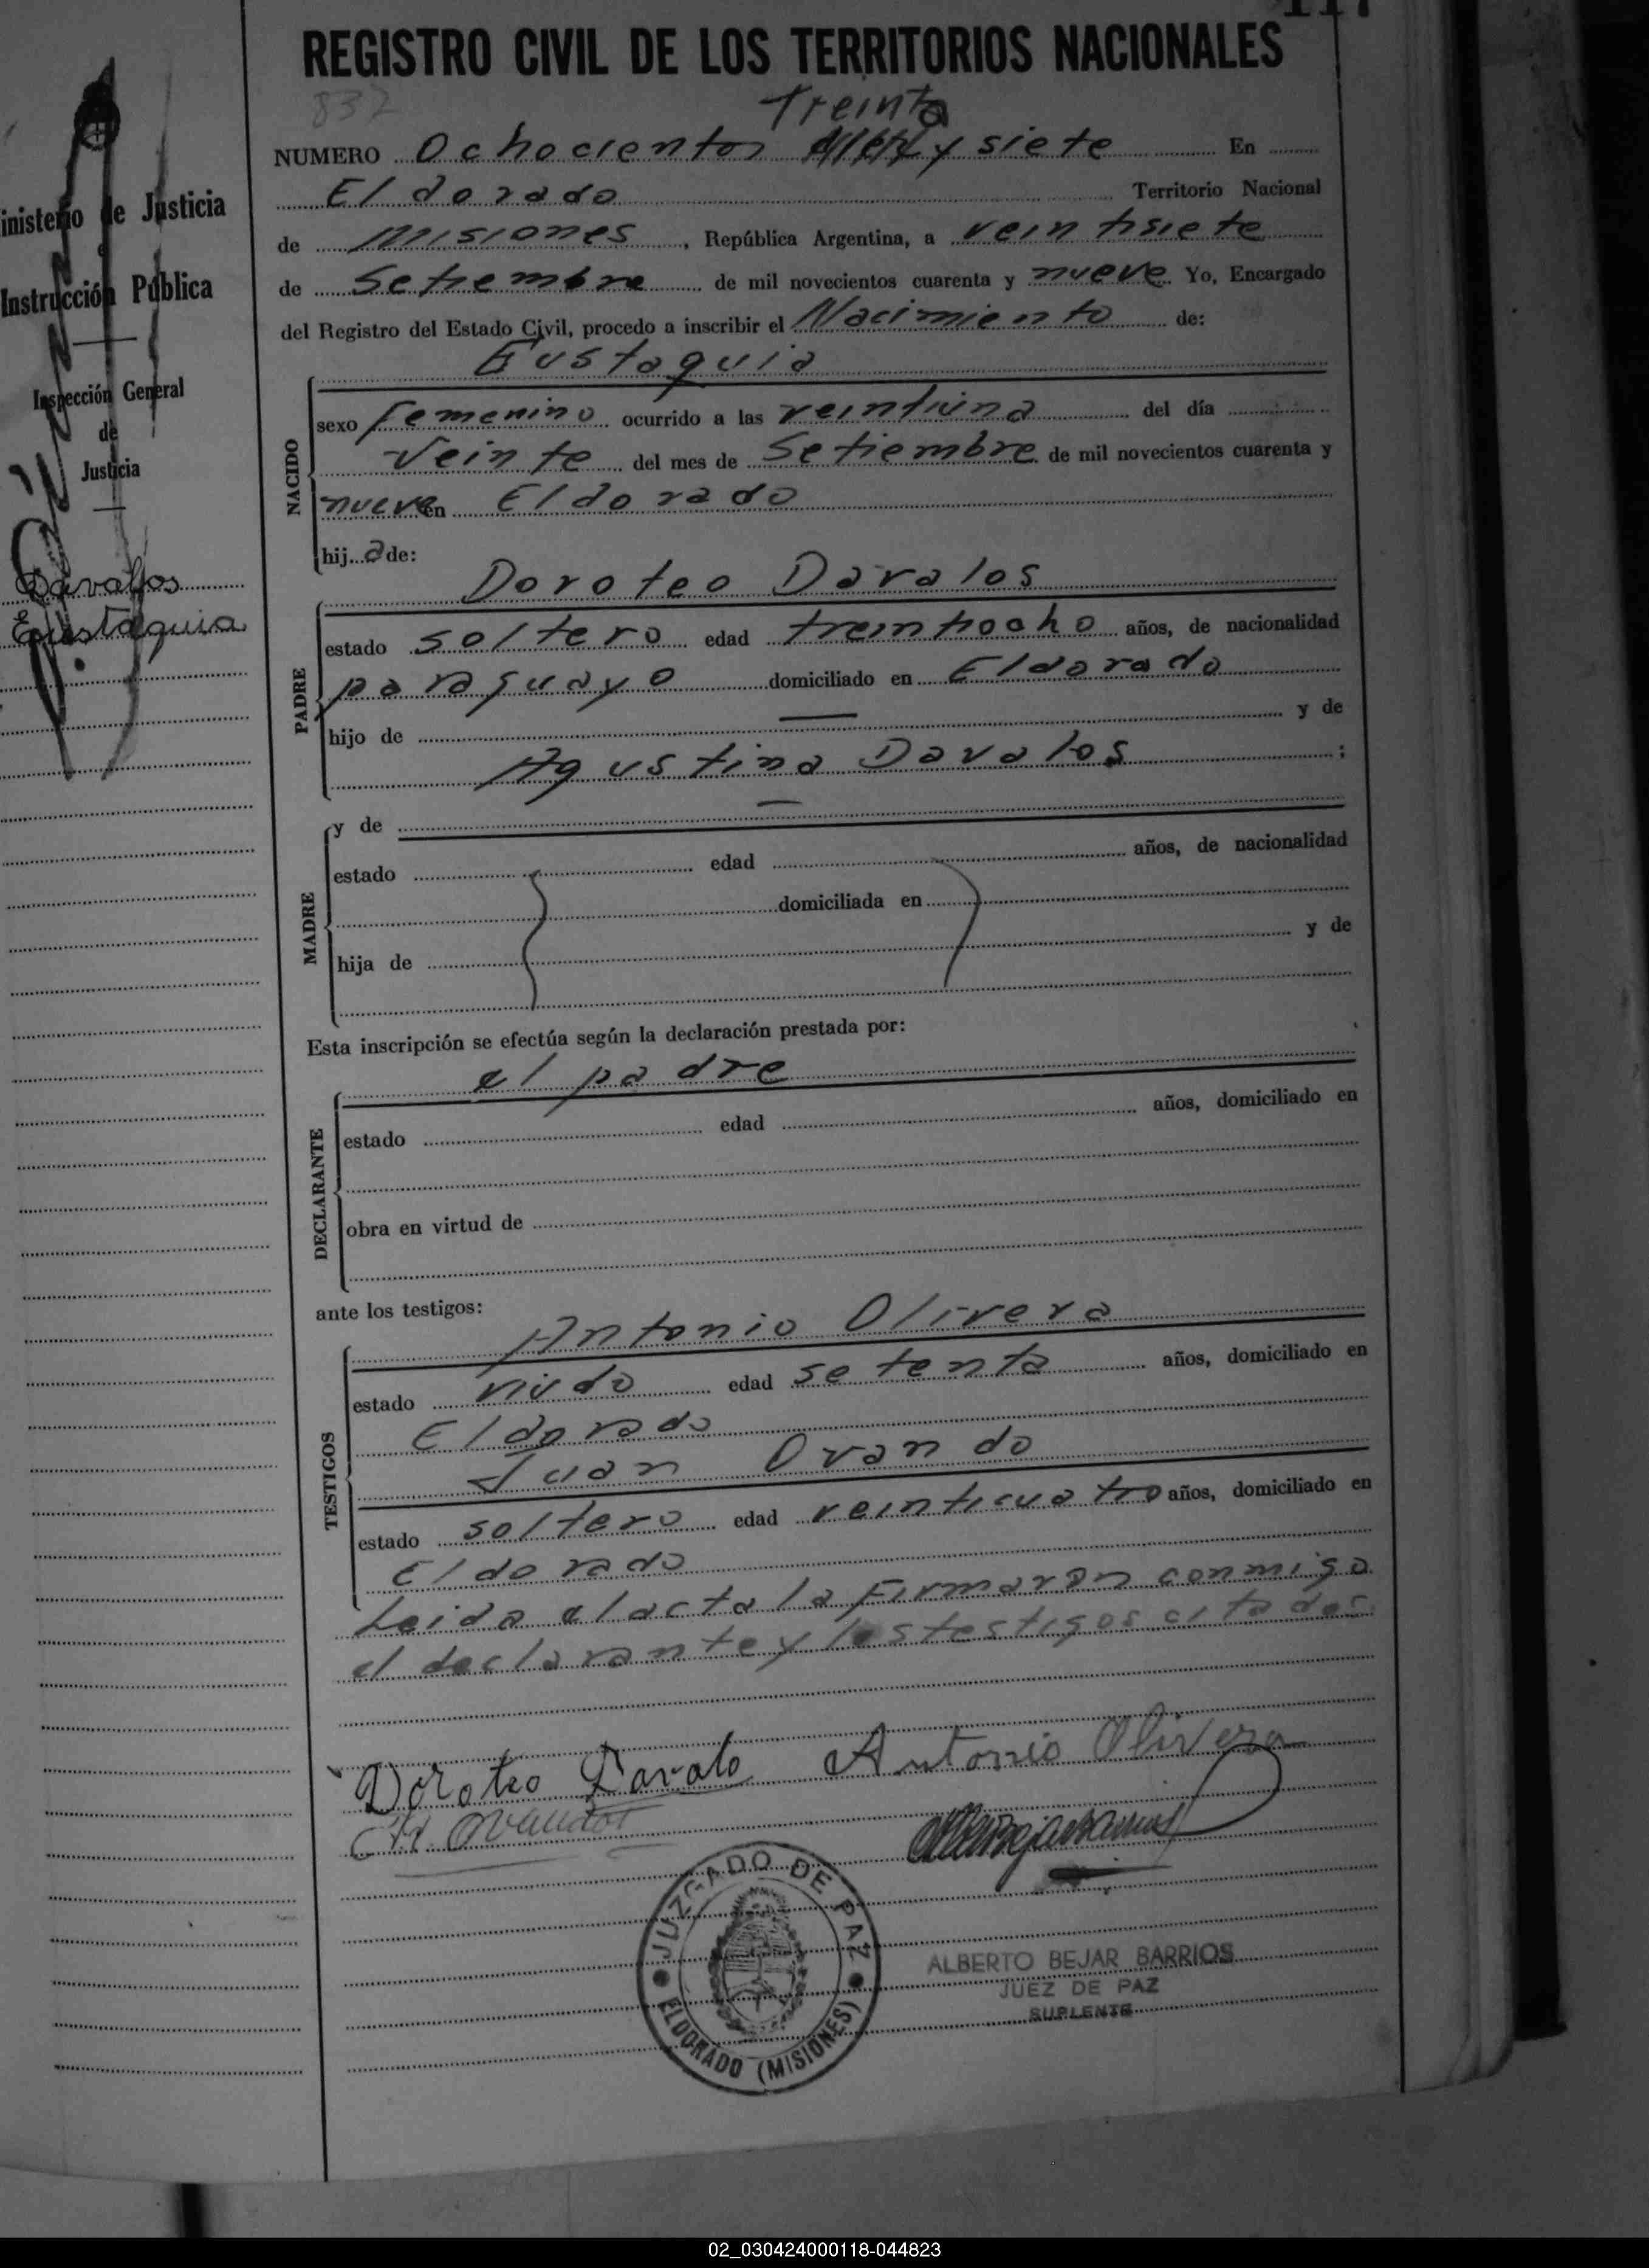 117
REGISTRO CIVIL DE LOS TERRITORIOS NACIONALES
837
Treinta
NUMERO Ochocientos y siete En
Eldorado Territorio Nacional
de Misiones, República Argentina, a veintisiete
de Setiembre de mil novecientos cuarenta y nueve Yo, Encargado
del Registro del Estado Civil, procedo a inscribir el Nacimiento de:
Eustaquia
NACIDO
sexo femenino ocurrido a las veintiuna del día
Veinte del mes de Setiembre de mil novecientos cuarenta y
nueve en Eldorado
hij a de:
Doroteo Davalos
PADRE
estado soltero edad treintiocho años, de nacionalidad
paraguayo domiciliado en Eldorado
hijo de — y de
Agustina Davalos ;
y de —
MADRE
estado edad años, de nacionalidad
domiciliada en
hija de y de
Esta inscripción se efectúa según la declaración prestada por:
el padre
DECLARANTE
estado edad años, domiciliado en
obra en virtud de
ante los testigos:
Antonio Olivera
TESTIGOS
estado viudo edad setenta años, domiciliado en
Eldorado
Juan Ovando
estado soltero edad veinticuatro años, domiciliado en
Eldorado
Leida el acta la Firmaron conmigo
el declarante y los testigos citados
Doroteo Davalo Antonio Olivera
Ovando
JUZGADO DE PAZ
ELDORADO (MISIONES)
ALBERTO BEJAR BARRIOS
JUEZ DE PAZ
SUPLENTE
inisterio de Justicia
Instrucción Pública
Inspección General
de
Justicia
Davalos
Eustaquia
02_030424000118-044823